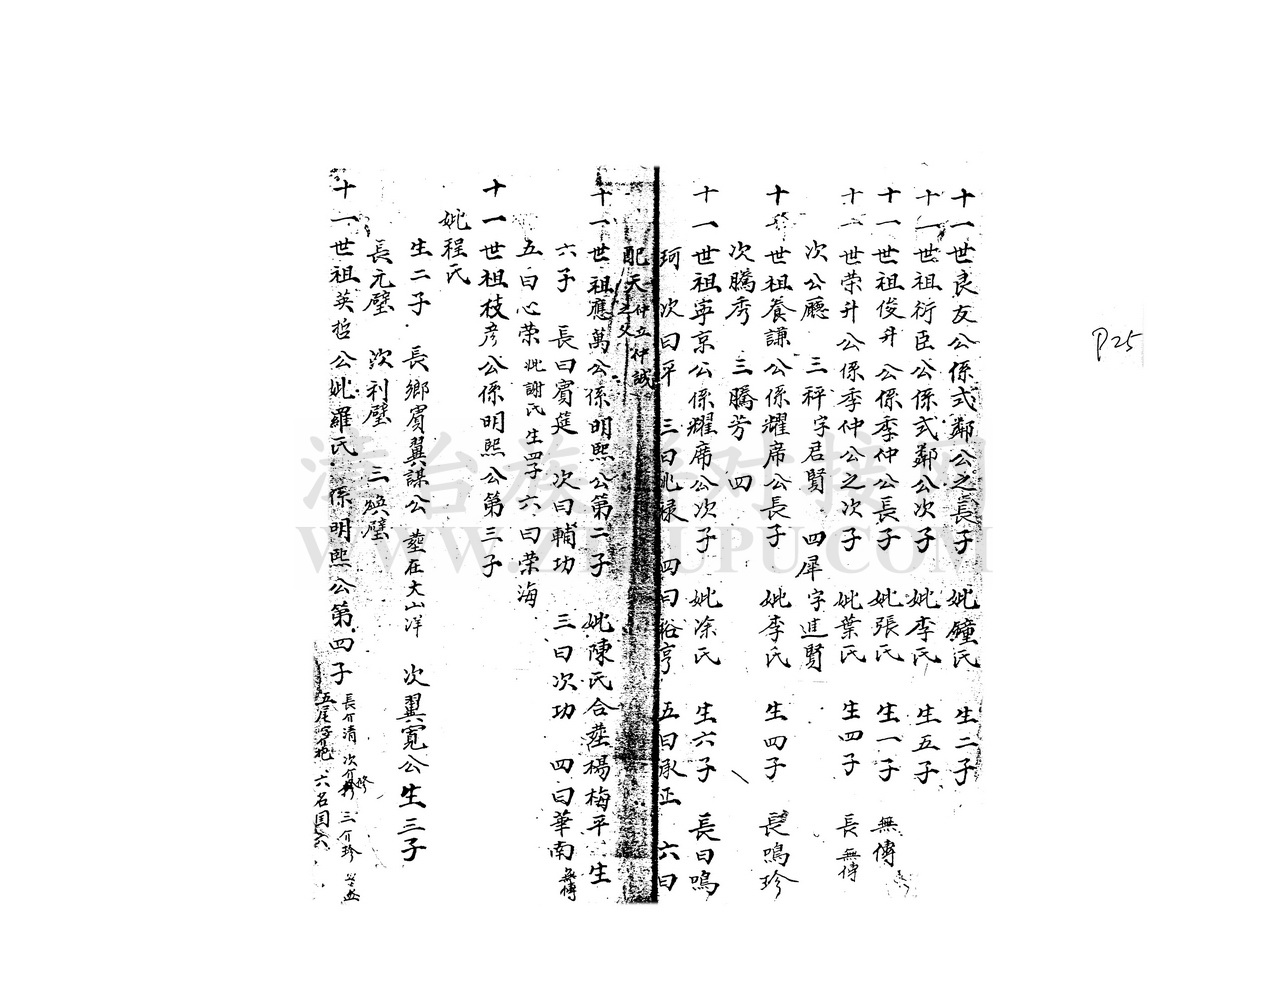 十一世良友公係式鄰公之長子 妣鐘氏 生二子
十一世祖衍臣公係式鄰公次子 妣李氏 生五子
十一世祖俊升公係季仲公長子 妣張氏 生一子 無傳
十一世荣升公係季仲公之次子 妣葉氏 生四子 長無傳
次公廳 三秤字君賢 四犀字進賢
十一世祖養謙公係耀席公長子 妣李氏 生四子 長鳴珍
次騰秀 三騰芳 四
十一世祖寧京公係耀席公次子 妣凃氏 生六子 長曰鳴
珂 次曰平 三曰兆禄 四曰裕亨 五曰承正 六曰
配天 仲立仲誠之父
十一世祖應萬公係明熙公第二子 妣陳氏合塟楊梅平 生
六子 長曰賓莚 次曰輔功 三曰次功 四曰華南 無傳
五曰心荣 妣謝氏生四子 六曰荣海
十一世祖枝彦公係明熙公第三子
妣程氏
生二子 長鄉賓翼謀公 塟在大山洋 次翼寬公生三子
長元璧 次利璧 三焕璧
十一世祖英哲公妣羅氏 係明熙公第四子
長介清 次介 修 三介珍
五尾 六名国
P25
清台族谱对接网
WWW.ZHUPU.COM